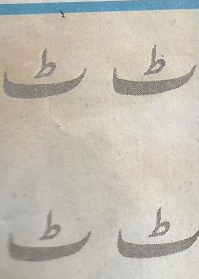 ٹ ٹ
ٹ ٹ